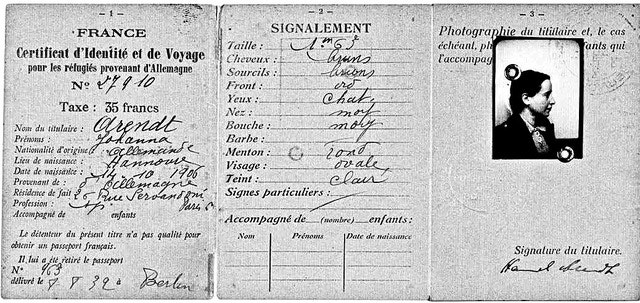 - 1 -
FRANCE
Certificat d'Identité et de Voyage
pour les réfugiés provenant d'Allemagne
No 27910
Taxe : 35 francs
Nom du titulaire : Arendt
Prénoms : Johanna
Nationalité d'origine : allemande
Lieu de naissance : Hannovre
Date de naissance : 14-10 1906
Provenant de : d'Allemagne
Résidence de fait : 26 Rue Servandoni
Paris 6
Profession : SP
Accompagné de enfants
Le détenteur du présent titre n'a pas qualité pour
obtenir un passeport français.
Il lui a été retiré le passeport
No 463
délivré le 8 8 32 à Berlin
- 2 -
SIGNALEMENT
Taille : 1m 63
Cheveux : bruns
Sourcils : bruns
Front : ord
Yeux : chat.
Nez : moy
Bouche : moy
Barbe :
Menton : rond
Visage : ovale
Teint : clair
Signes particuliers :
Accompagné de (nombre) enfants :
Nom Prénoms Date de naissance
- 3 -
Photographie du titulaire et, le cas
échéant, ph fants qui
l'accompag
Signature du titulaire.